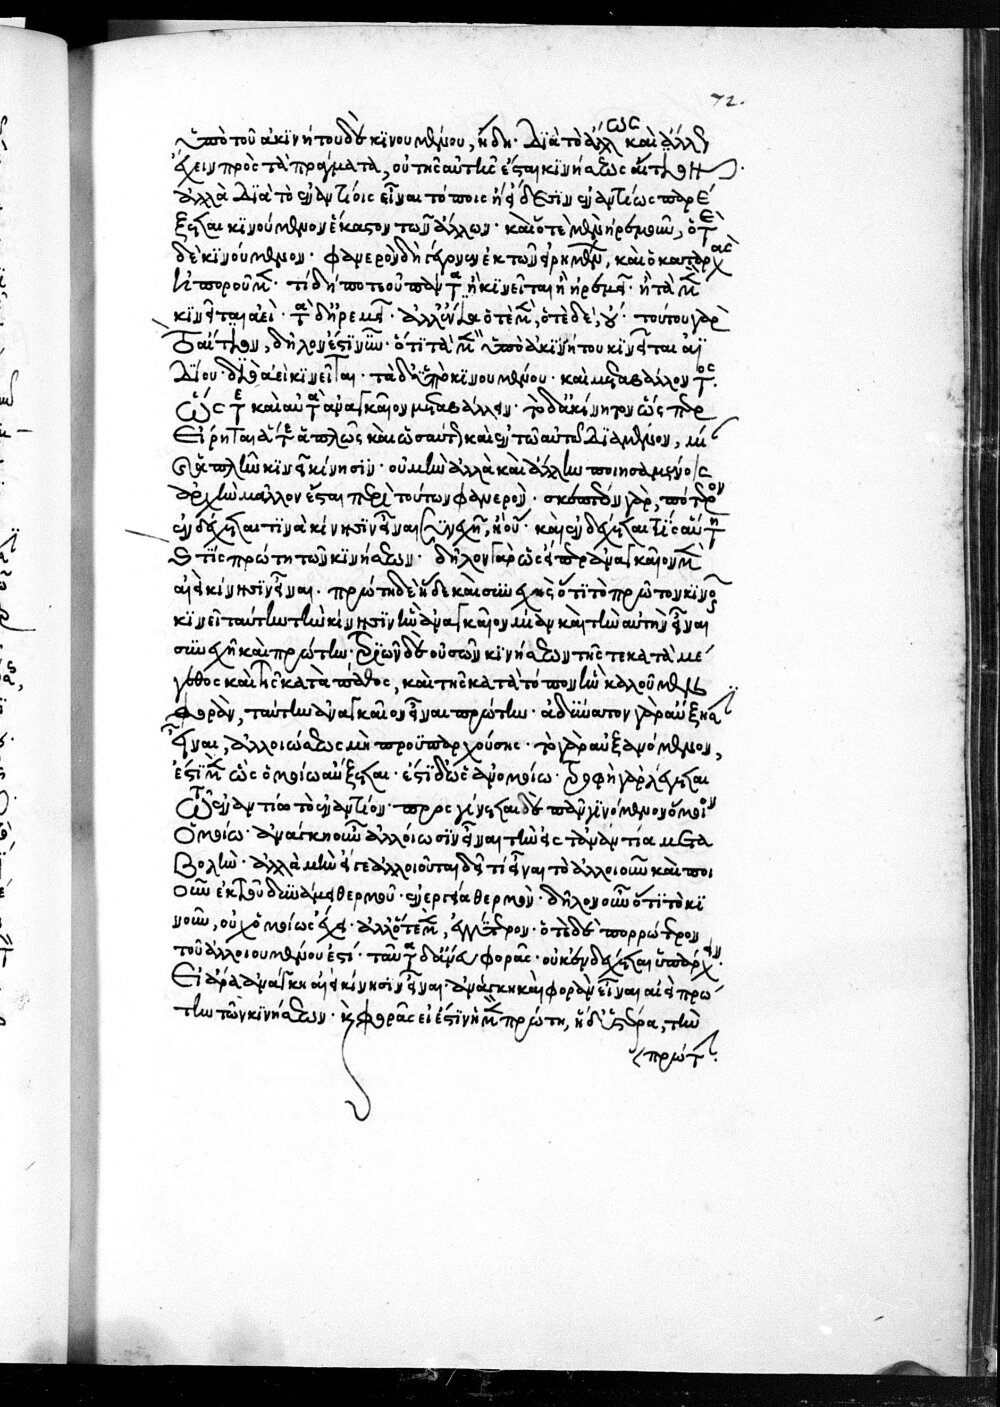 72.
ὑπὸ τοῦ ἀκινήτου δὲ κινουμένου, ἤδη· διὰ τὸ ἄλλως καὶ ἄλλως
ἔχειν πρὸς τὰ πράγματα, οὐ τῆς αὐτῆς ἔσται κινήσεως αἴτιον·
ἀλλὰ διὰ τὸ ἐν ἐναντίοις εἶναι τόποις ἢ εἴδεσιν ἐναντίως παρέ
ξεται κινούμενον ἕκαστον τῶν ἄλλων· καὶ ὁτὲ μὲν ἠρεμοῦν, ὁτὲ
δὲ κινούμενον· φανερὸν δὴ γέγονεν ἐκ τῶν εἰρημένων, καὶ ὃ κατ' ἀρχὰς
ἠποροῦμεν· τί δή ποτε οὐ πάντα ἢ κινεῖται ἢ ἠρεμεῖ· ἢ τὰ μὲν
κινεῖται ἀεὶ· τὰ δ' ἠρεμεῖ· ἀλλ' ἔνια ὁτὲ μὲν, ὁτὲ δὲ, οὔ· τούτου γὰρ
τὸ αἴτιον, δῆλόν ἐστι νῦν· ὅτι τὰ μὲν ὑπὸ ἀκινήτου κινεῖται ἀϊ
δίου· διὸ ἀεὶ κινεῖται· τὰ δ' ὑπὸ κινουμένου· καὶ μεταβάλλοντος·
ὥστε καὶ αὐτὰ ἀναγκαῖον μεταβάλλειν· τὸ δ' ἀκίνητον ὥσπερ
εἴρηται ἅτε ἁπλῶς καὶ ὡσαύτως καὶ ἐν τῷ αὐτῷ διαμένον, μί
αν καὶ ἁπλῆν κινεῖ κίνησιν· οὐ μὴν ἀλλὰ καὶ ἄλλην ποιησαμένοις
ἀρχὴν μᾶλλον ἔσται περὶ τούτων φανερὸν· σκεπτέον γὰρ, πότερον
ἐνδέχεταί τινα κίνησιν εἶναι συνεχῆ, ἢ οὔ· καὶ εἰ ἐνδέχεται τίς αὕτη
καὶ τίς πρώτη τῶν κινήσεων· δῆλον γὰρ ὡς εἴπερ ἀναγκαῖον μὲν
ἀεὶ κίνησιν εἶναι· πρώτη δὲ ἥδε καὶ συνεχὴς ὅτι τὸ πρῶτον κινοῦν
κινεῖ ταύτην τὴν κίνησιν ἣν ἀναγκαῖον μίαν καὶ τὴν αὐτὴν εἶναι
συνεχῆ καὶ πρώτην· τριῶν δὲ οὐσῶν κινήσεων τῆς τε κατὰ μέ
γεθος καὶ τῆς κατὰ πάθος, καὶ τῆς κατὰ τόπον ἣν καλοῦμεν
φορὰν, ταύτην ἀναγκαῖον εἶναι πρώτην· ἀδύνατον γὰρ αὔξησιν
εἶναι, ἀλλοιώσεως μὴ προϋπαρχούσης· τὸ γὰρ αὐξανόμενον,
ἔστι μὲν ὡς ὁμοίῳ αὔξεται· ἔστι δ' ὡς ἀνομοίῳ· τροφὴ γὰρ λέγεται
τῷ ἐναντίῳ τὸ ἐναντίον· προσγίνεται δὲ πᾶν γινόμενον ὅμοιον
ὁμοίῳ· ἀνάγκη οὖν ἀλλοίωσιν εἶναι τὴν εἰς τἀναντία μετα
βολὴν· ἀλλὰ μὴν εἴ γε ἀλλοιοῦται δεῖ τι εἶναι τὸ ἀλλοιοῦν καὶ ποι
οῦν ἐκ τοῦ δυνάμει θερμοῦ· ἐνεργείᾳ θερμὸν· δῆλον οὖν ὅτι τὸ κι
νοῦν, οὐχ ὁμοίως ἔχει· ἀλλ' ὁτὲ μὲν, ἐγγύτερον· ὁτὲ δὲ πορρώτερον
τοῦ ἀλλοιουμένου ἐστί· ταῦτα δ' ἄνευ φορᾶς· οὐκ ἐνδέχεται ὑπάρχειν·
εἰ ἄρα ἀνάγκη ἀεὶ κίνησιν εἶναι· ἀνάγκη καὶ φορὰν εἶναι ἀεὶ πρώ
την τῶν κινήσεων· καὶ φορᾶς εἰ ἔστιν ἡ μὲν πρώτη, ἡ δ' ὑστέρα, τὴν
πρώτην·